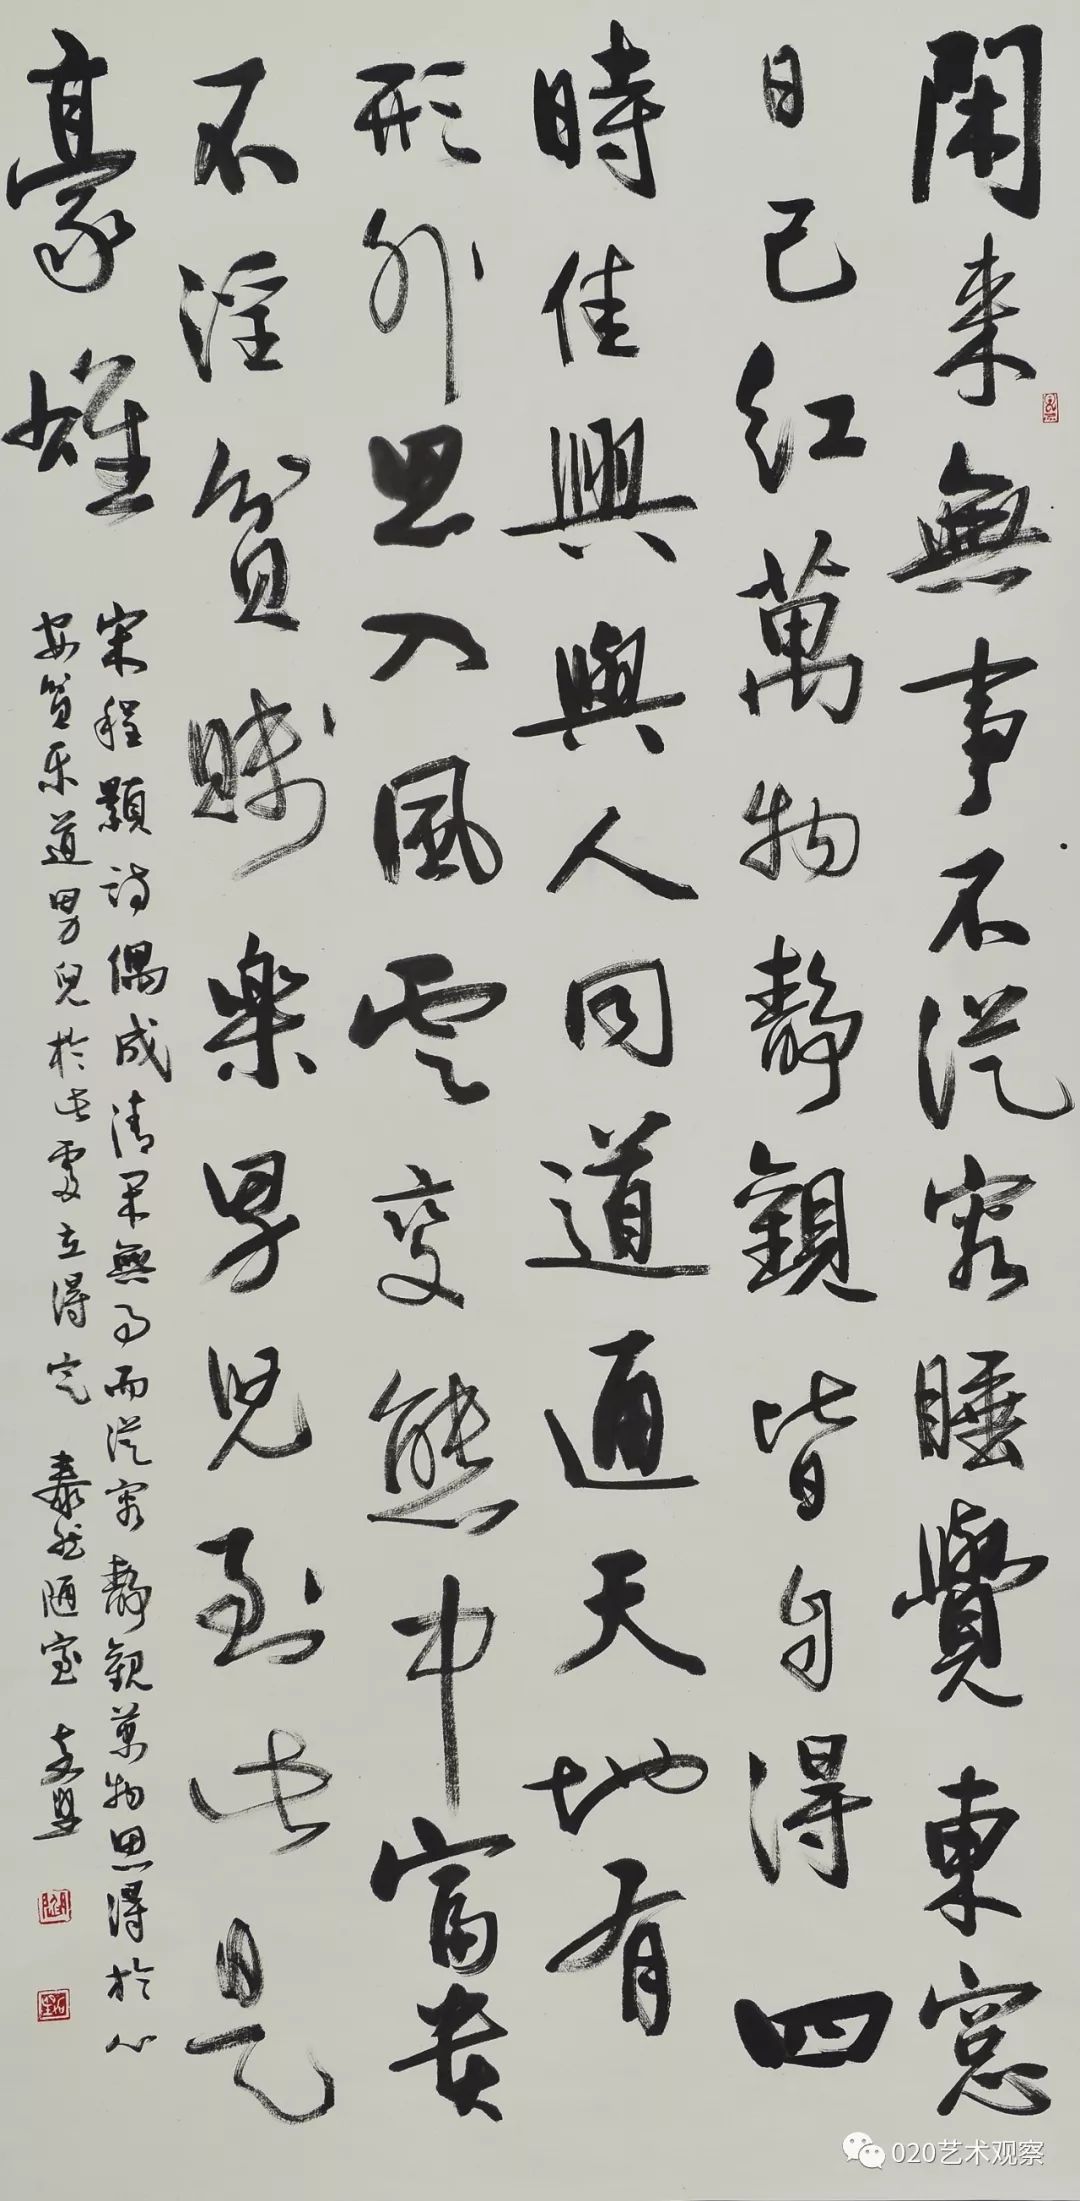 閑来無事不從容睡覺東窓
日已紅萬物靜觀皆自得四
時佳興與人同道通天地有
形外思入風雲變態中富貴
不淫貧賤樂男兒到此是
豪雄
宋程顥詩偶成清閑無事而從容靜觀萬物思得於心
安貧乐道男兒於此處立得定 泰然陋室
020艺术观察